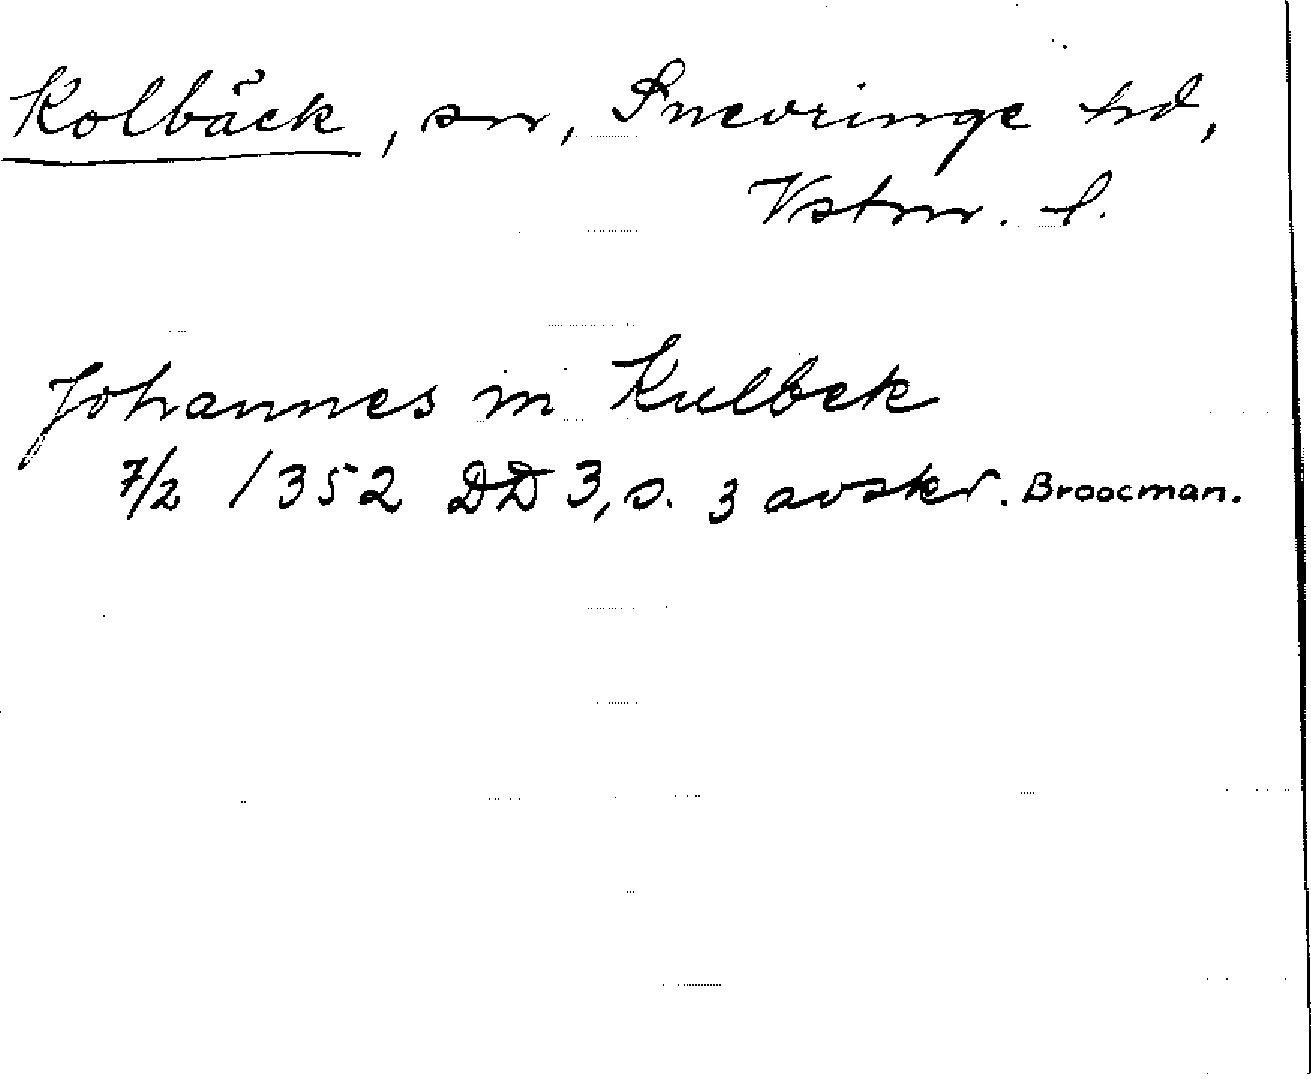 Kolbäck, sn, Snevringe hd,
Vstm. l.
Johannes in Kulbek
7/2 1352 DD 3, s. 3 avskr. Broocman.